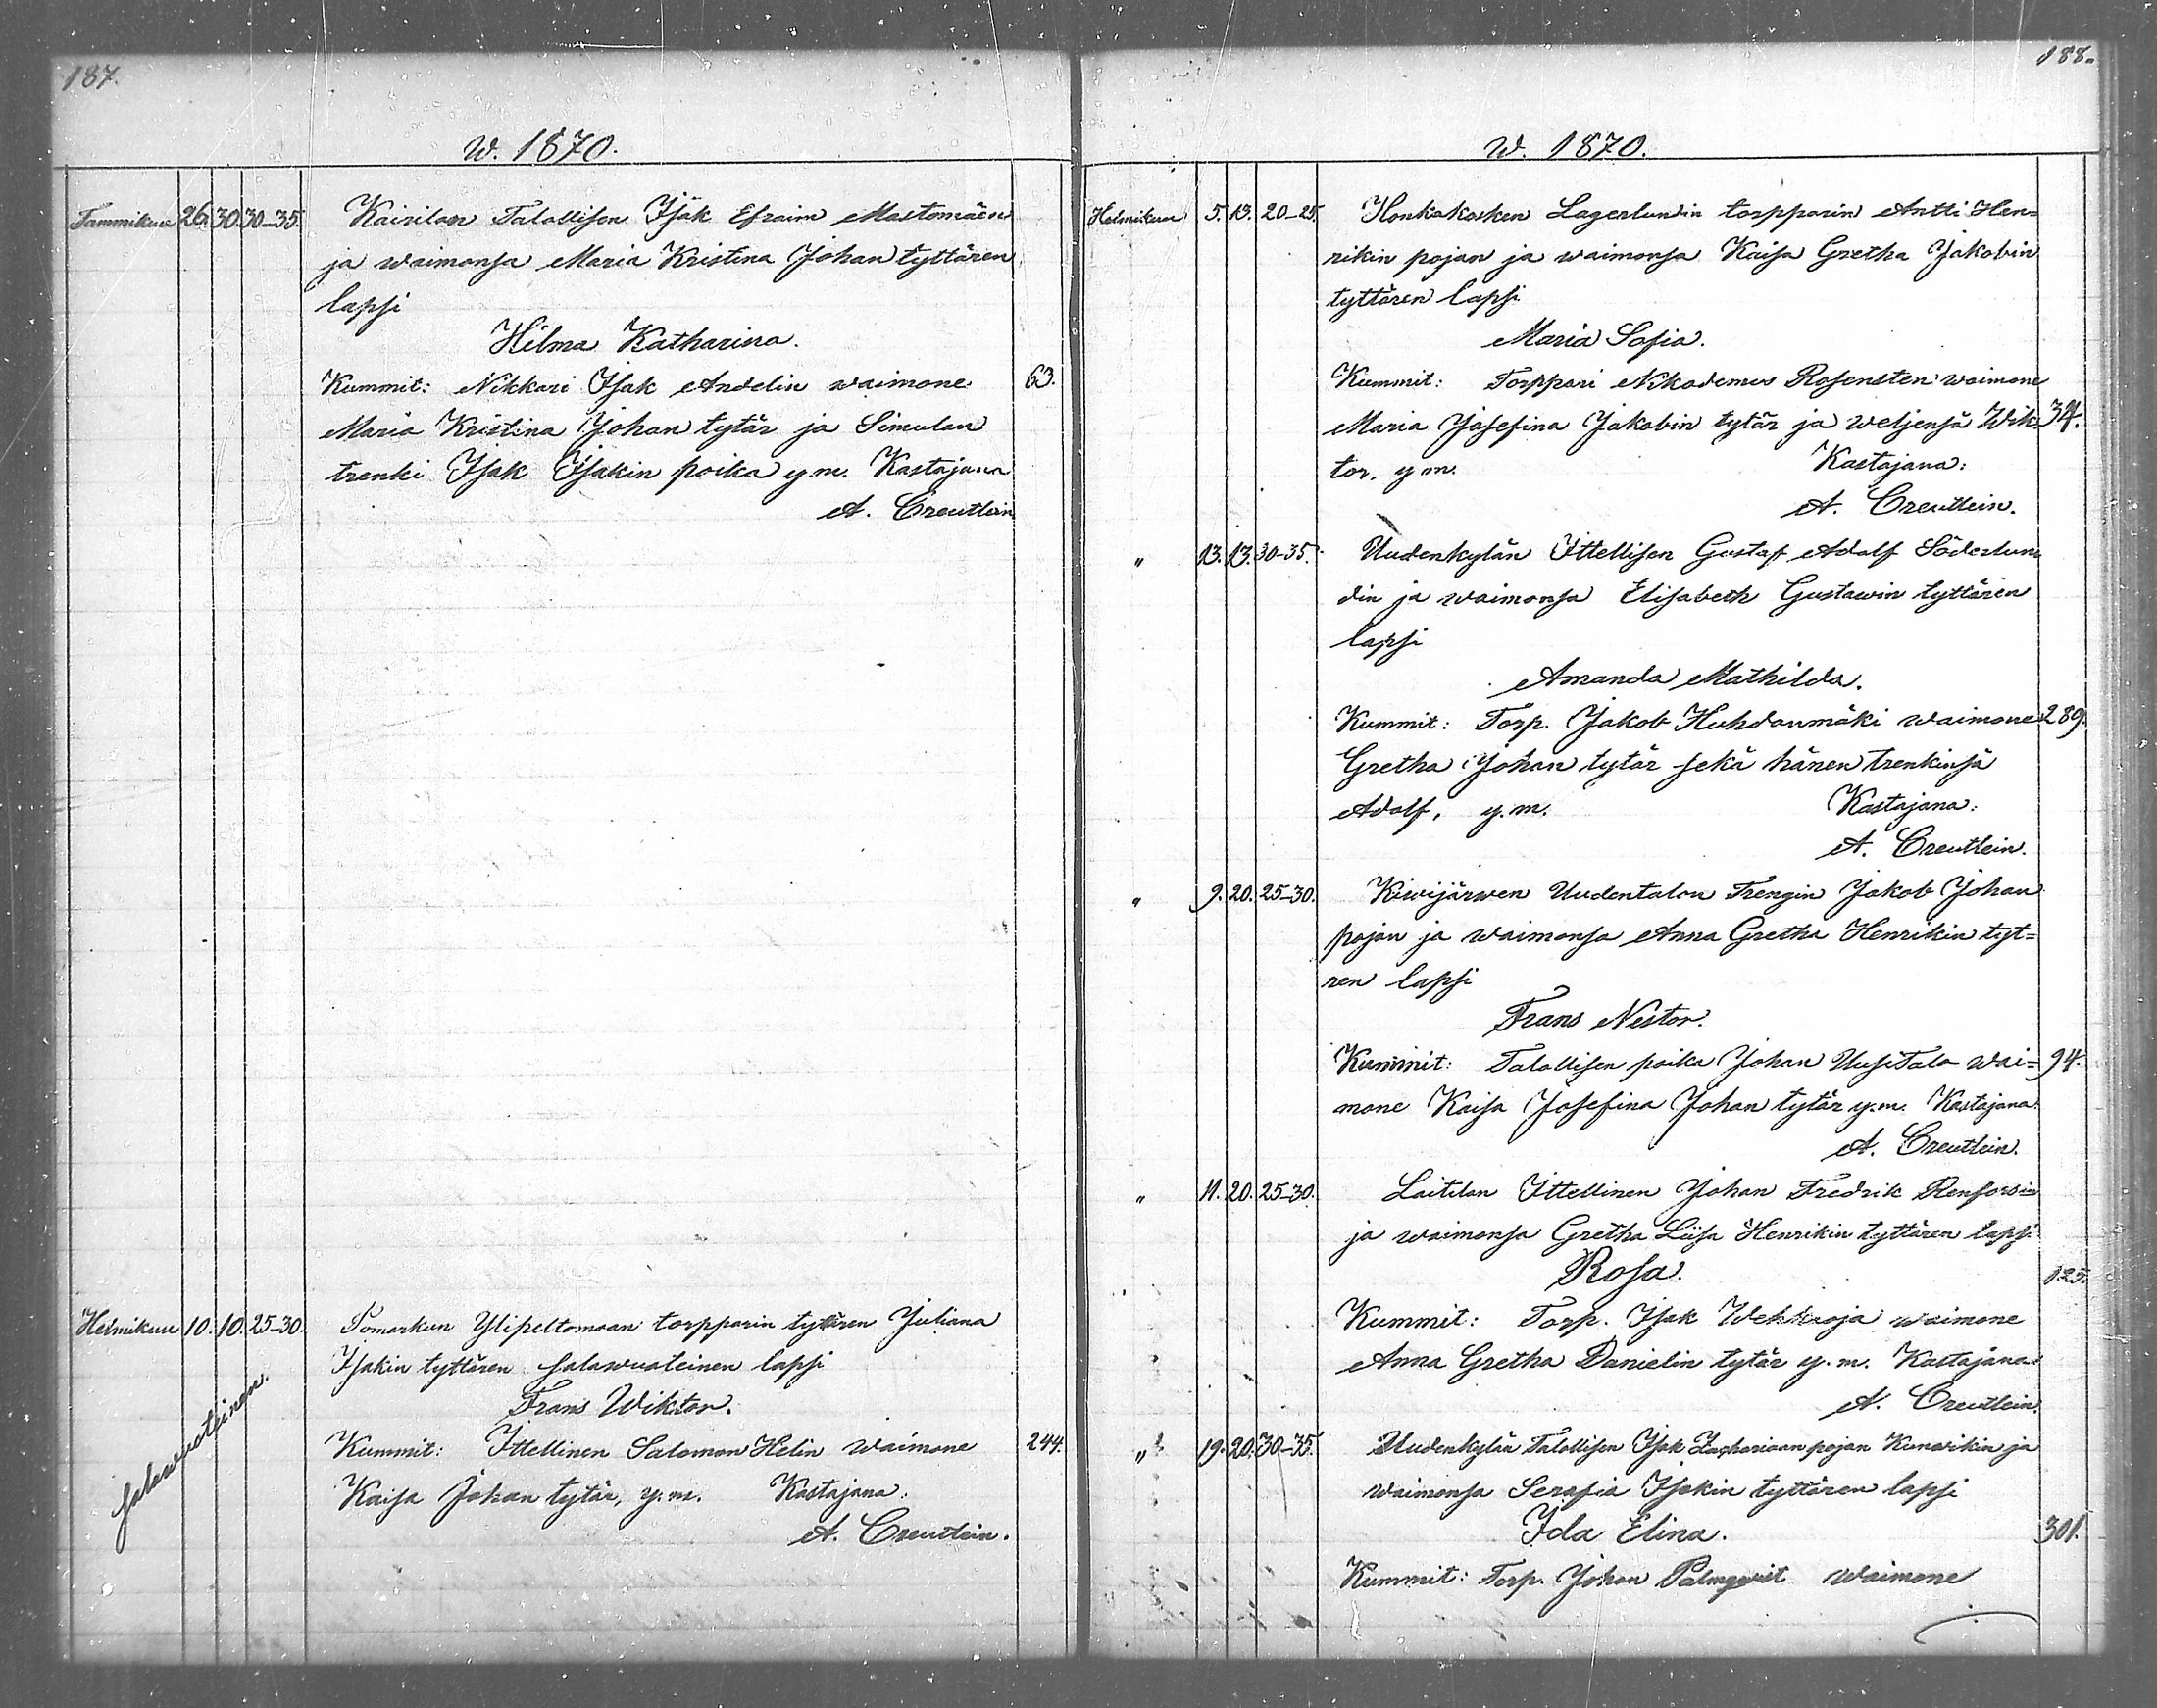 187.
w. 1870.
Tammikuu 26. 30. 30-35. Kairilan Talollisen Isak Efraim Mastomäen
ja waimonsa Maria Kristina Johan tyttären
lapsi
Hilma Katharina.
Kummit: Nikkari Isak Andelin waimone 63.
Maria Kristina Johan tytär ja Simulan
trenki Isak Isakin poika y.m. Kastajana
A. Creutlein
Helmikuu 10. 10. 25-30. Pomarkun Ylipeltomaan torpparin tytären Juliana
Isakin tyttären salawuoteinen lapsi
Frans Wiktor.
Kummit: Ittellinen Salomon Helin waimone 244.
Kaisa Johan tytär, y.m. Kastajana:
A. Creutlein.
salawuoteinen.
188.
w. 1870.
Helmikuu 5. 13. 20-25. Honkakosken Lagerlundin torpparin Antti Hen=
rikin pojan ja waimonsa Kaisa Gretha Jakobin
tyttären lapsi
Maria Sofia.
Kummit: Torppari Nikodemus Rosensten waimone
Maria Josefina Jakobin tytär ja weljensä Wik= 34.
tor, y.m. Kastajana:
A. Creutlein.
" 13. 13. 30-35. Uudenkylän Ittellisen Gustaf Adolf Söderlun=
din ja waimonsa Elisabeth Gustawin tyttären
lapsi
Amanda Mathilda.
Kummit: Torp. Jakob Huhdanmäki waimone 289.
Gretha Johan tytär sekä hänen trenkinsä
Adolf, y.m. Kastajana:
A. Creutlein.
" 9. 20. 25-30. Kiwijärwen Uudentalon Trengin Jakob Johan
pojan ja waimonsa Anna Gretha Henrikin tyt=
ren lapsi
Frans Nestor.
Kummit: Talollisen poika Johan UusiTalo wai= 94.
mone Kaisa Josefina Johan tytär y.m. Kastajana:
A. Creutlein.
" 11. 20. 25-30. Laitilan Ittellinen Johan Fredrik Renforsin
ja waimonsa Gretha Liisa Henrikin tyttären lapsi
Rosa. 125.
Kummit: Torp. Isak Wehkaoja waimone
Anna Gretha Danielin tytär y.m. Kastajana:
A. Creutlein.
" 19. 20. 30-35. Uudenkylän Talollisen Isak Zachariaan pojan Kunarikin ja
waimonsa Serafia Isakin tyttären lapsi
Ida Elina. 301.
Kummit: Torp. Johan Palmqwist waimone